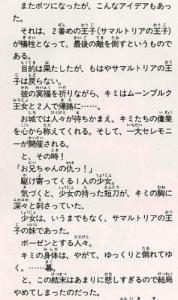 またボツになったが、こんなアイデアもあった。
それは、2番めの王子(サマルトリアの王子)が犠牲となって、最後の敵を倒すというものである。
目的は果たしたが、もはやサマルトリアの王子は戻らない。
彼の冥福を祈りながら、キミはムーンブルク王女と2人で帰路に……。
お城では人々が待ちかまえ、キミたちの偉業を心から称えてくれる。そして、一大セレモニーが開催される。
と、その時!
「お兄ちゃんの仇っ!」
駆け寄ってくる1人の少女。
気づくと、少女の持った短刀が、キミの胸に深々と刺さっていた。
少女は、いうまでもなく、サマルトリアの王子の妹であった。
ボーゼンとする人々。
キミの身体は、やがて、ゆっくりと倒れてゆく。……幕。
と、この結末はあまりに悲しすぎるので結局やめてしまったのだった。